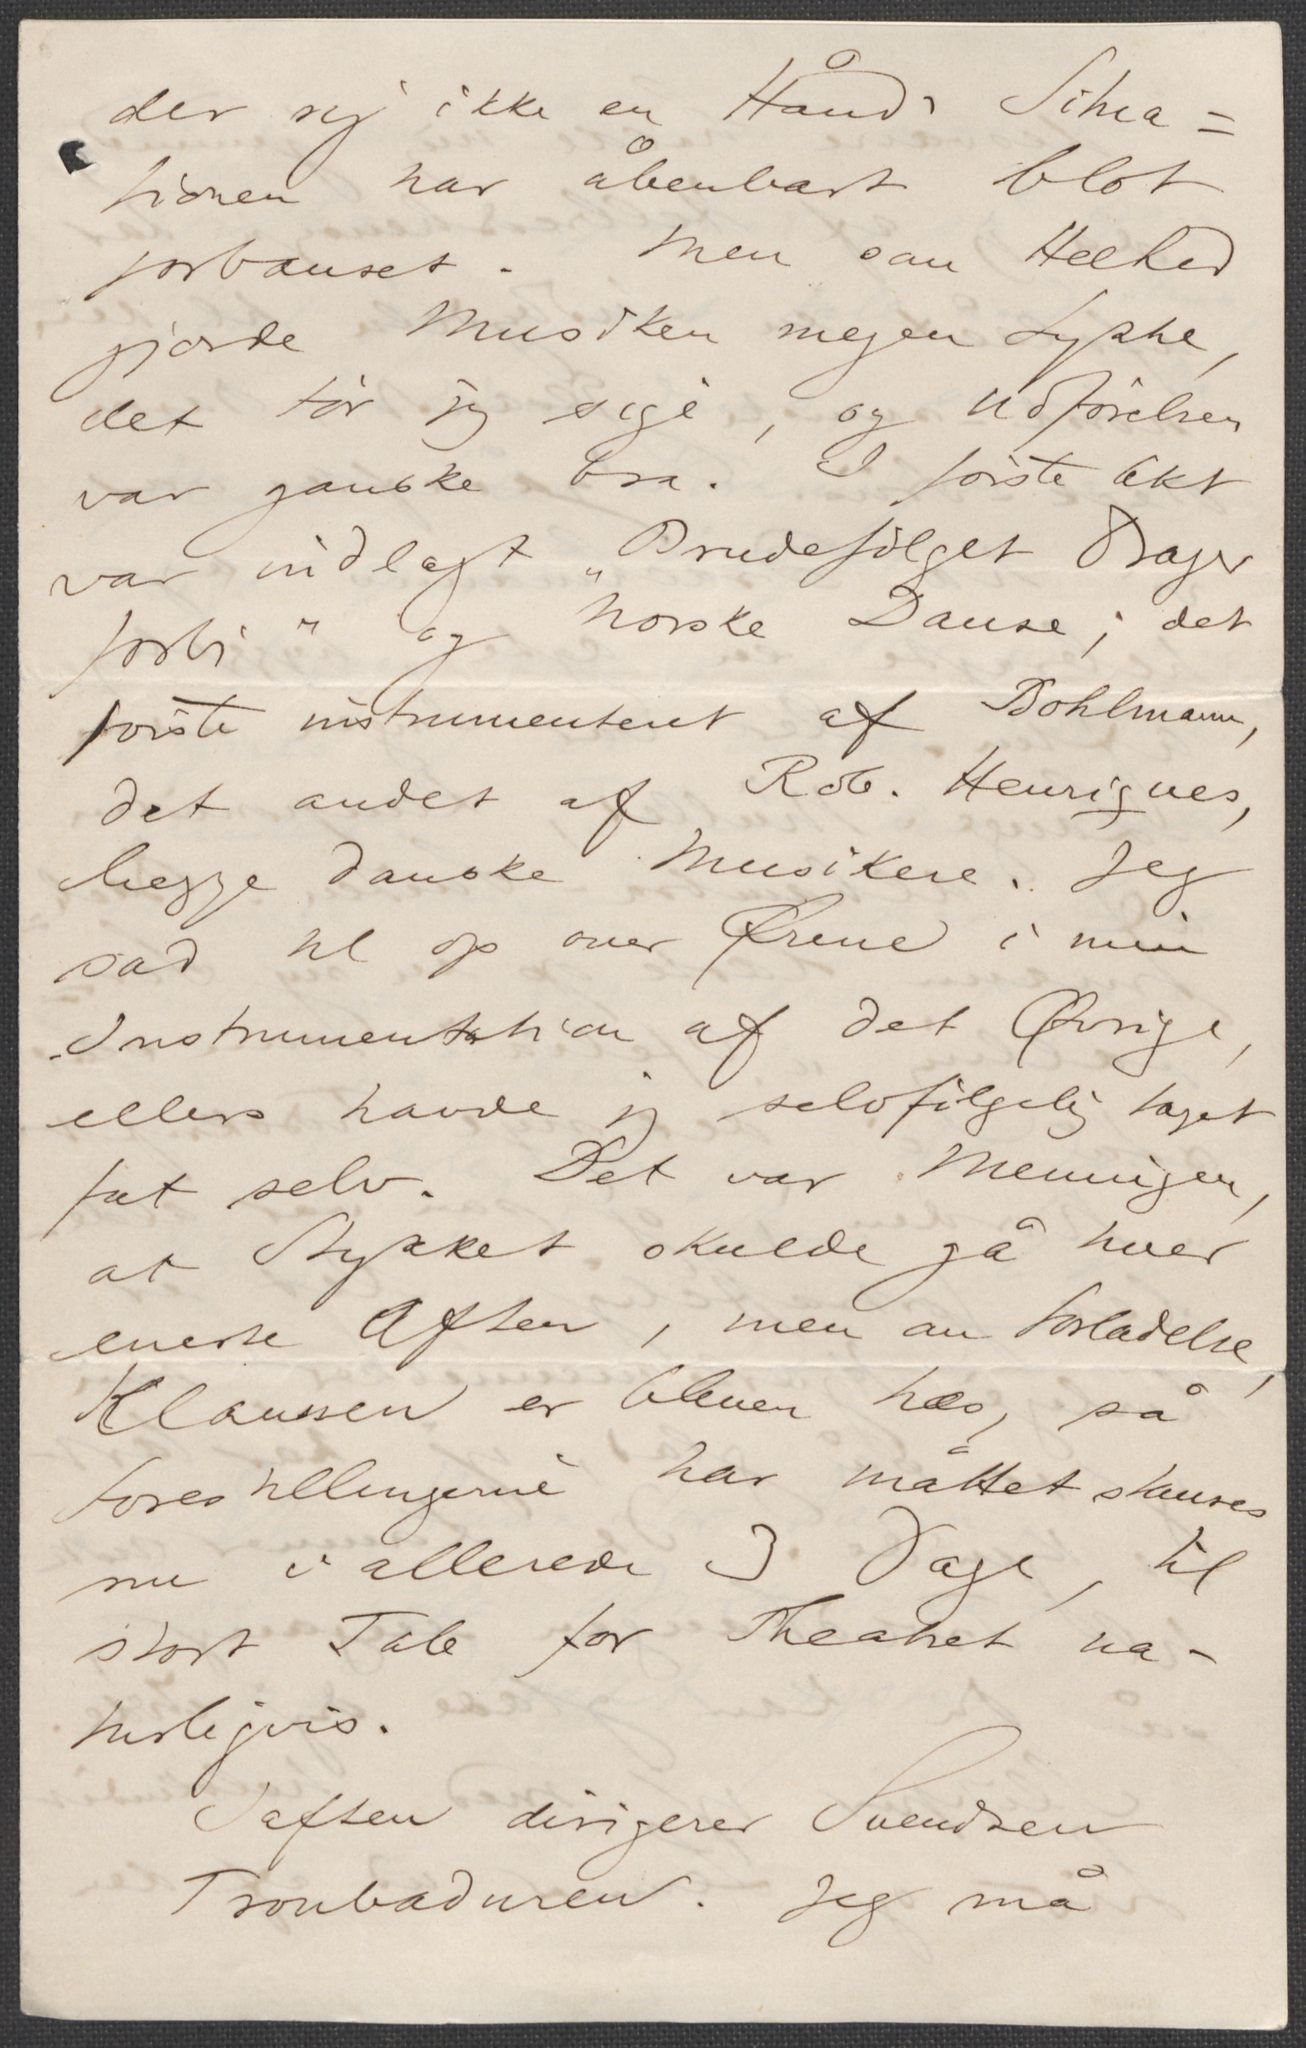 der sig ikke en Hånd. Situa=
tionen har åbenbart blot
forbauset. Men som Helhed
gjorde Musiken megen Lykke,
det tør jeg sige, og Udførelsen
var ganske bra. I første Akt
var indlagt „Brudefølget drager
forbi" og Norske Danse; det
første instrumenteret af Bohlmann,
det andet af Rob. Henriques,
begge danske Musikere. Jeg
sad til op over Ørene i min
Instrumentation af det Øvrige,
ellers havde jeg selvfølgelig taget
fat selv. Det var Meningen,
at Stykket skulde gå hver
eneste Aften, men om forladelse,
Klaussen er bleven hæs, så
Forestillingerne har måttet stanses
nu i allerede 3 Dage, til
stort Tab for Theatret na-
turligvis.
Iaften dirigerer Svendsen
Troubaduren. Jeg må